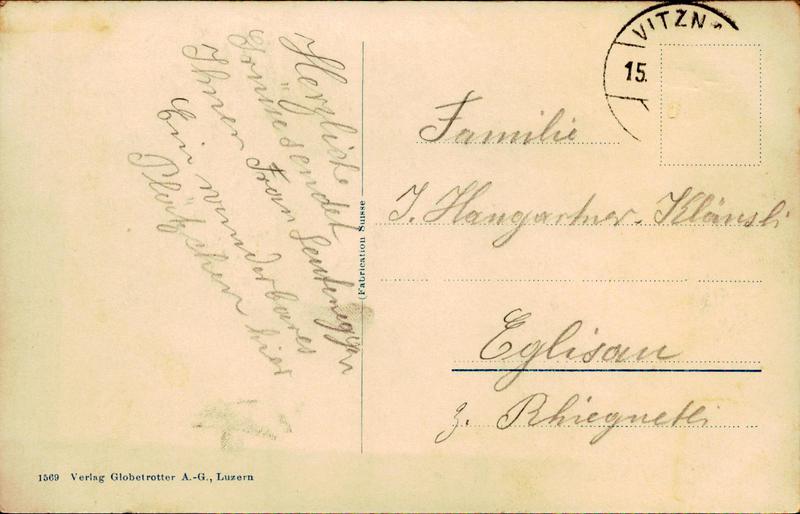 Herzliche
Grüsse sendet
Ihnen Frau Leutenegger
Ein wunderbares
Plätzchen hier
(Fabrication Suisse
VITZN
15.
Familie
J. Hangartner-Klänsli
Eglisau
z. Rhieguetli
1569 Verlag Globetrotter A.-G., Luzern